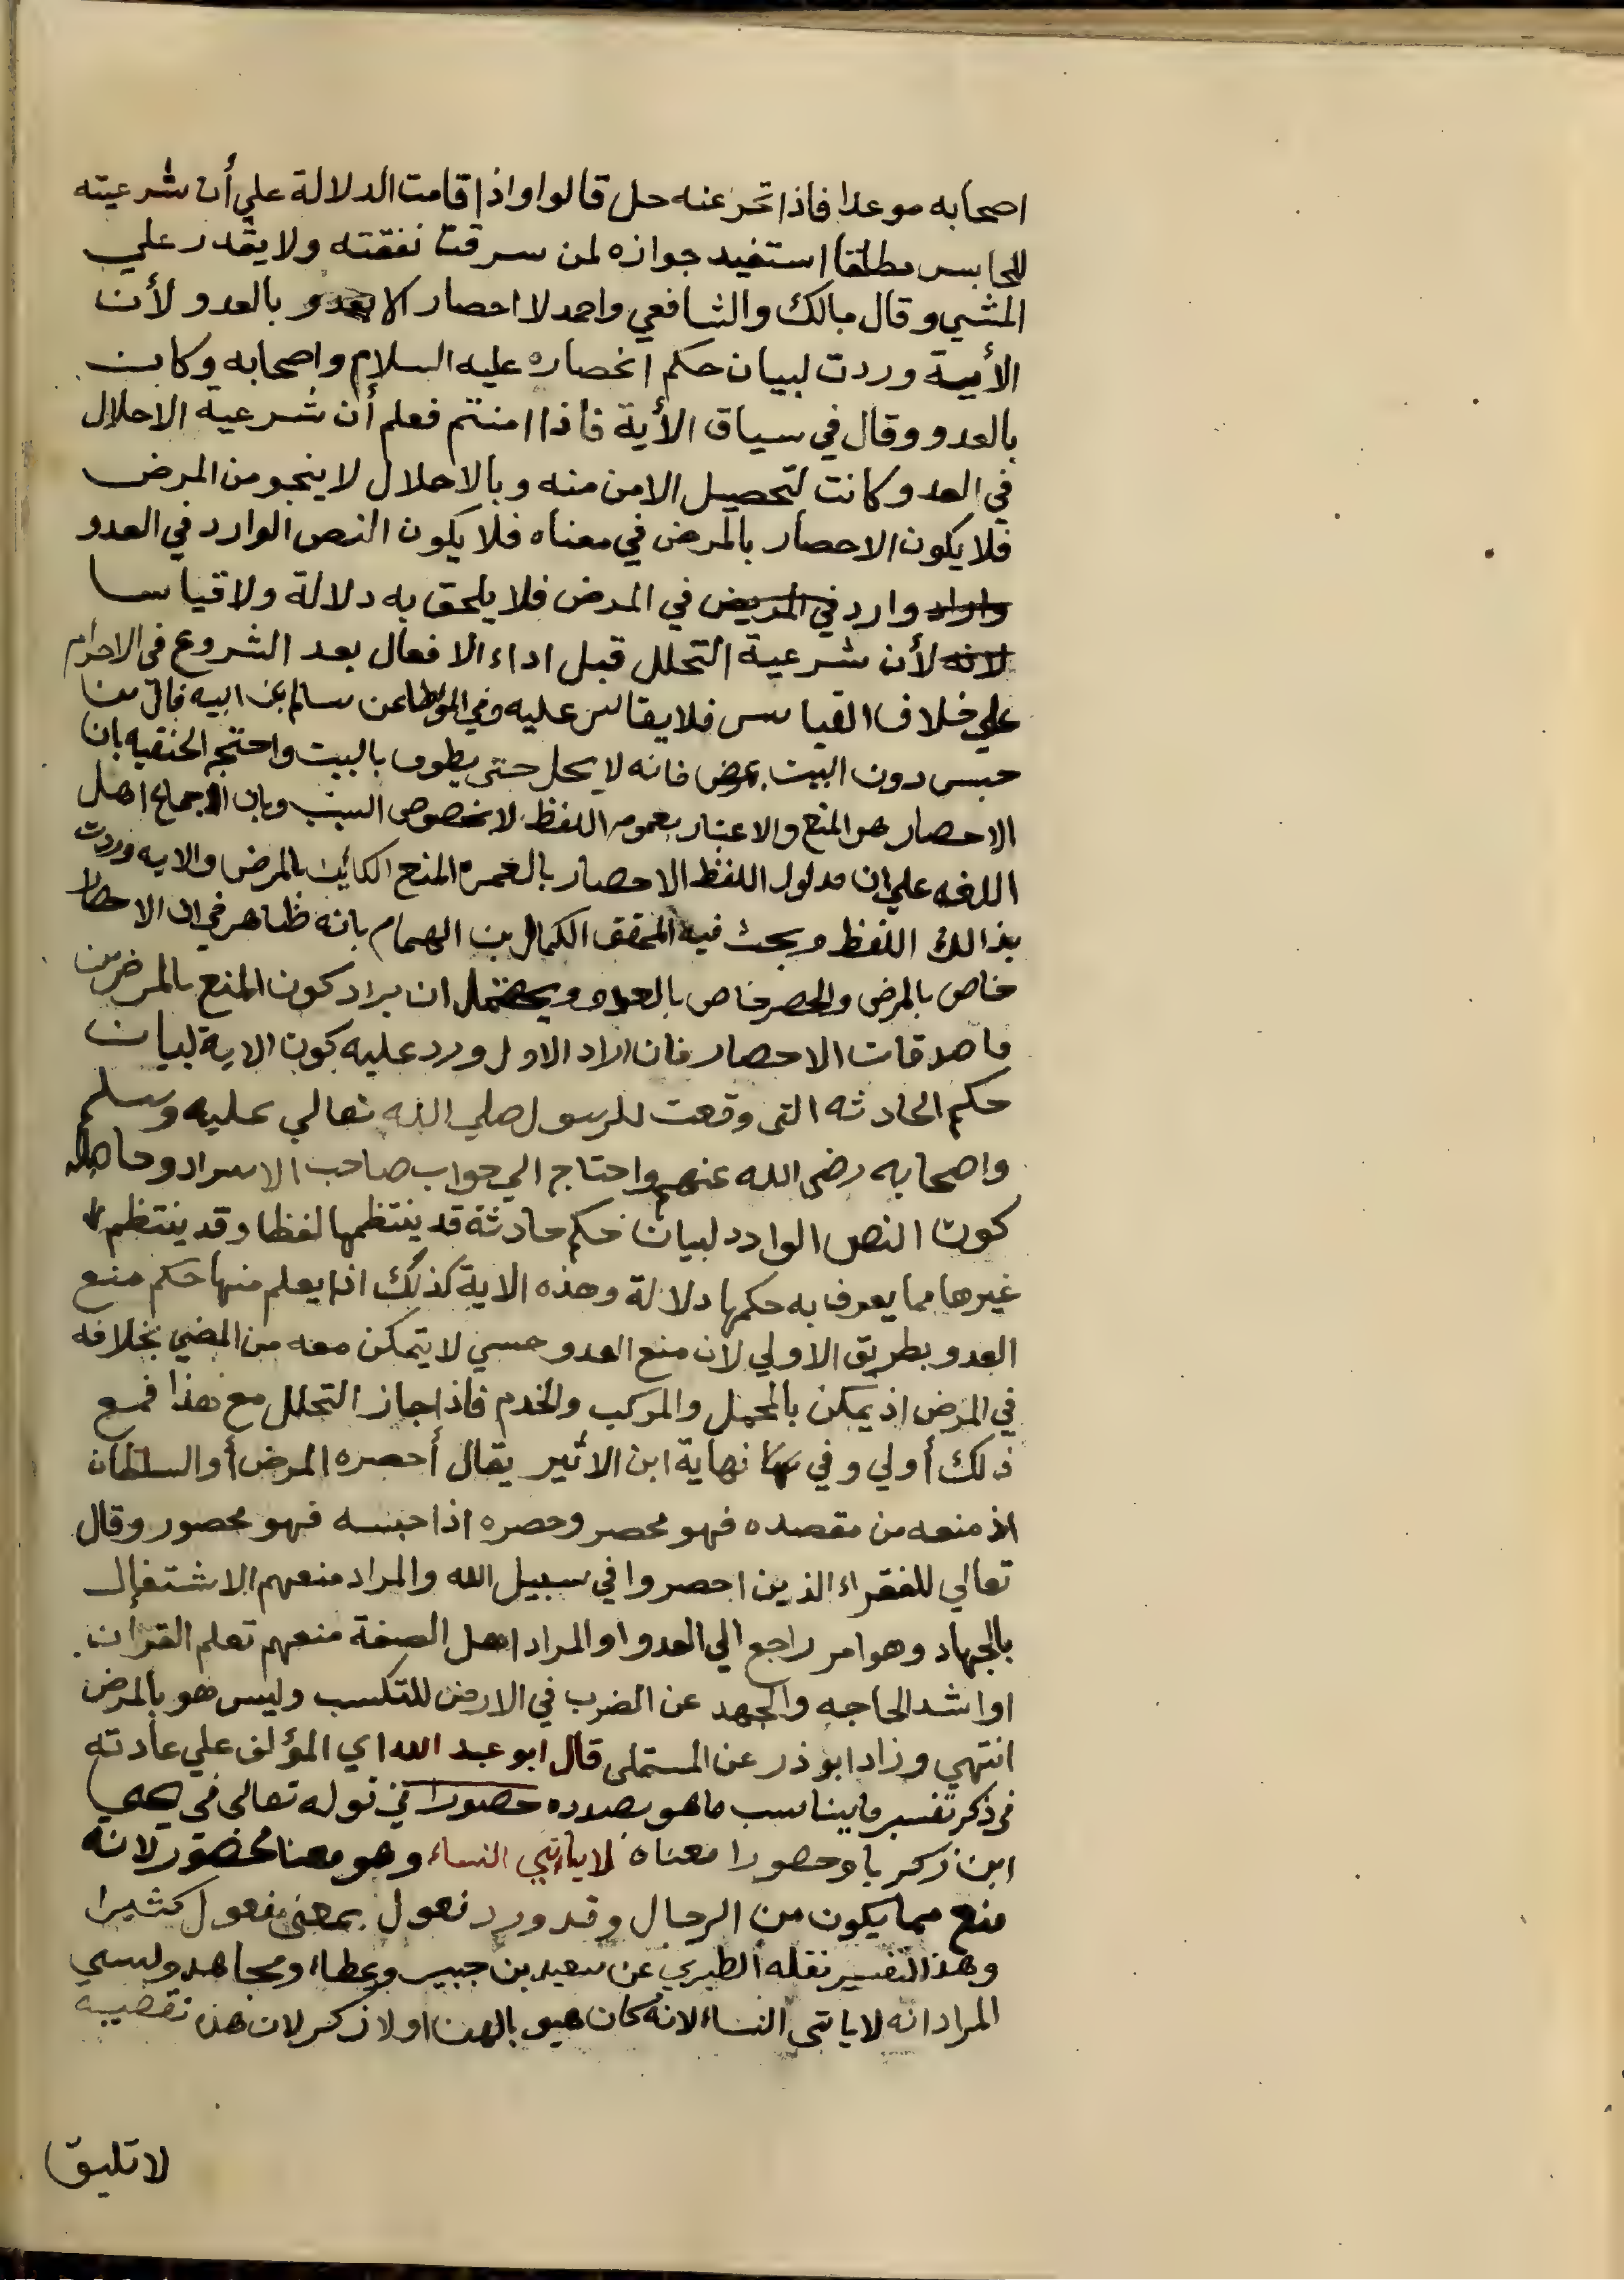 اصحابه موعدا فاذا نحر عنه حل قالوا واذا قامت الدلالة علي أن شرعيته
للحابس مطلقا استفيد جوازه لمن سرقت نفقته ولا يقدر علي
المشي وقال مالك والشافعي واحمد لا احصار الا بالعدو لأن
الأية وردت لبيان حكم انحصاره عليه السلام واصحابه وكان
بالعدو وقال في سياق الأية فاذا امنتم فعلم أن شرعية الاحلال
في العدو كانت لتحصيل الامن منه وبالاحلال لا ينجو من المرض
فلا يكون الاحصار بالمرض في معناه فلا يكون النص الوارد في العدو
وارد في المرض فلا يلحق به دلالة ولا قياسا
لأن شرعية التحلل قبل اداء الافعال بعد الشروع في الاحرام
علي خلاف القياس فلا يقاس عليه وفي الموطا عن سالم عن ابيه قال من
حبس دون البيت بمرض فانه لا يحل حتى يطوف بالبيت واحتج الحنفيه بان
الاحصار هو المنع والاعتبار بعموم اللفظ لا بخصوص السبب وبان الاجماع اهل
اللغه علي ان مدلول اللفظ الاحصار بالعمره المنع الكاين بالمرض والايه وردت
بذالك اللفظ وبحث فيه المحقق الكمال بن الهمام بانه ظاهر في ان الاحصار
خاص بالمرض والحصر خاص بالعدو ويحتمل ان يراد كون المنع بالمرض من
ماصدقات الاحصار فان اراد الاول ورد عليه كون الاية لبيان
حكم الحادثه التى وقعت للرسول صلي الله تعالي عليه وسلم
واصحابه رضى الله عنهم واحتاج الي جواب صاحب الاسرار وحاصله
كون النص الوارد لبيان حكم حادثة قد ينتظمها لفظا وقد ينتظم
غيرها مما يعرف به حكمها دلالة وهذه الاية كذلك اذ يعلم منها حكم منع
العدو بطريق الاولي لان منع العدو حسي لا يتمكن معه من المضي بخلافه
في المرض اذ يمكن بالمحمل والمركب والخدم فاذا جاز التحلل مع هذا فمع
ذلك أولي وفي نهاية ابن الاثير يقال أحصره المرض أو السلطان
اذ منعه من مقصده فهو محصر وحصره اذا حبسه فهو محصور وقال
تعالي للفقراء الذين احصروا في سبيل الله والمراد منعهم الاشتغال
بالجهاد وهو امر راجع الي العدو او المراد اهل الصفة منعهم تعلم القران
او اشد الحاجه والجهد عن الضرب في الارض للتكسب وليس هو بالمرض
انتهي وزاد ابو ذر عن المستملى قال ابو عبد الله اي المؤلف علي عادته
فى ذكر تفسير ما يناسب ما هو بصدده حصورا في قوله تعالى في يحيي
ابن زكريا وحصورا معناه لا ياءتي النساء وهو معنا محضور لانه
منع مما يكون من الرجال وقد ورد فعول بمعنى مفعول كثيرا
وهذا التفسير نقله الطبري عن سعيد بن جبير وعطاء ومجاهد وليس
المراد انه لا ياتى النساء لانه كان هيوبا لهن او لا ذكر لان هذه نقصيه
لا تليق